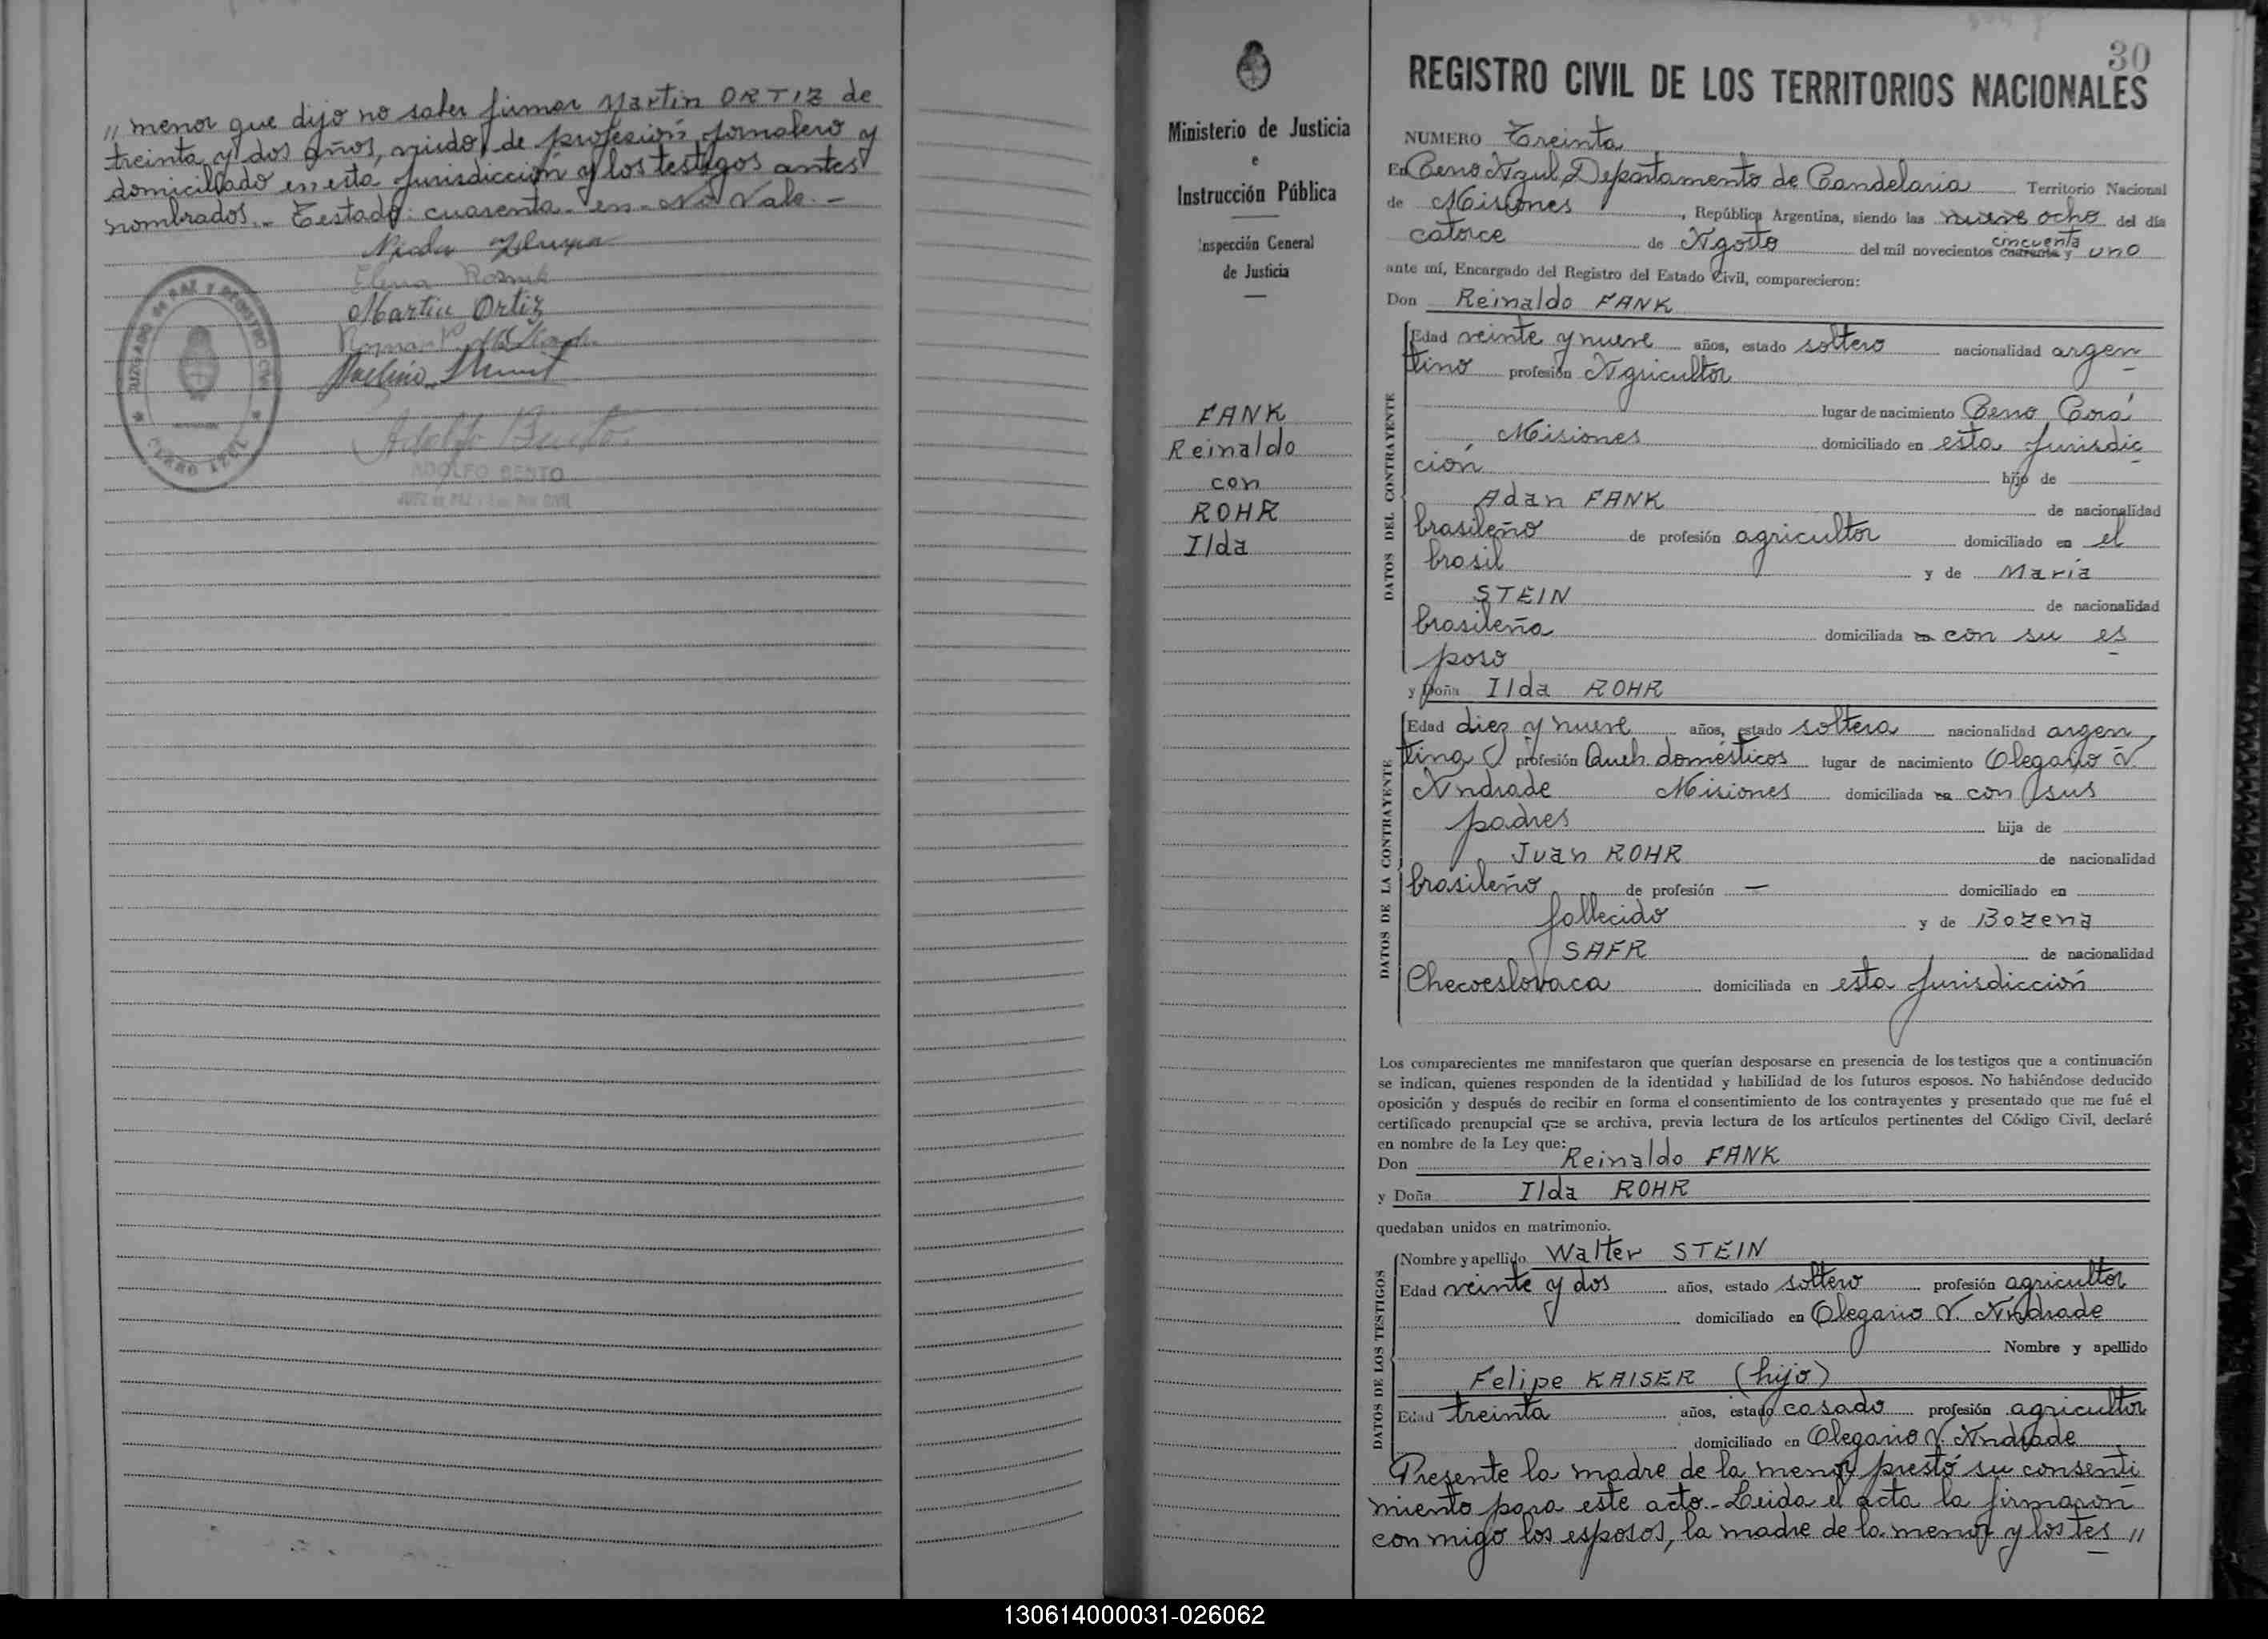 " menor que dijo no saber firmar Martin ORTIZ de
treinta y dos años, viudo, de profesión jornalero y
domiciliado en esta jurisdicción y los testigos antes
nombrados.- Testado: cuarenta - en - No Vale.-
Martin Ortiz
JUZGADO DE PAZ Y REGISTRO CIVIL
CERRO AZUL
Adolfo Bento
ADOLFO BENTO
JUEZ DE PAZ
30
REGISTRO CIVIL DE LOS TERRITORIOS NACIONALES
Ministerio de Justicia
e
Instrucción Pública
Inspección General
de Justicia
FANK
Reinaldo
con
ROHR
Ilda
NUMERO Treinta
En Cerro Azul, Departamento de Candelaria Territorio Nacional
de Misiones, República Argentina, siendo las nueve ocho del día
catorce de Agosto del mil novecientos cuarenta cincuenta y uno
ante mí, Encargado del Registro del Estado Civil, comparecieron:
Don Reinaldo FANK
DATOS DEL CONTRAYENTE
Edad veinte y nueve años, estado soltero nacionalidad argen
tino profesión Agricultor
lugar de nacimiento Cerro Corá
Misiones domiciliado en esta Jurisdic
ción hijo de
Adan FANK de nacionalidad
brasileño de profesión agricultor domiciliado en el
brasil y de María
STEIN de nacionalidad
brasileña domiciliada en con su es
poso
y Doña Ilda ROHR
DATOS DE LA CONTRAYENTE
Edad diez y nueve años, estado soltera nacionalidad argen
tina profesión Queh. domésticos lugar de nacimiento Olegario V.
Andrade Misiones domiciliada en con sus
padres hija de
Juan ROHR de nacionalidad
brasileño de profesión — domiciliado en
fallecido y de Bozena
SAFR de nacionalidad
Checoeslovaca domiciliada en esta Jurisdicción
Los comparecientes me manifestaron que querían desposarse en presencia de los testigos que a continuación
se indican, quienes responden de la identidad y habilidad de los futuros esposos. No habiéndose deducido
oposición y después de recibir en forma el consentimiento de los contrayentes y presentado que me fué el
certificado prenupcial que se archiva, previa lectura de los artículos pertinentes del Código Civil, declaré
en nombre de la Ley que:
Don Reinaldo FANK
y Doña Ilda ROHR
quedaban unidos en matrimonio.
DATOS DE LOS TESTIGOS
Nombre y apellido Walter STEIN
Edad veinte y dos años, estado soltero profesión agricultor
domiciliado en Olegario V. Andrade
Nombre y apellido
Felipe KAISER (hijo)
Edad treinta años, estado casado profesión agricultor
domiciliado en Olegario V. Andrade
Presente la madre de la menor prestó su consenti
miento para este acto.- Leida el acta la firmaron
con migo los esposos, la madre de la menor y los tes "
130614000031-026062